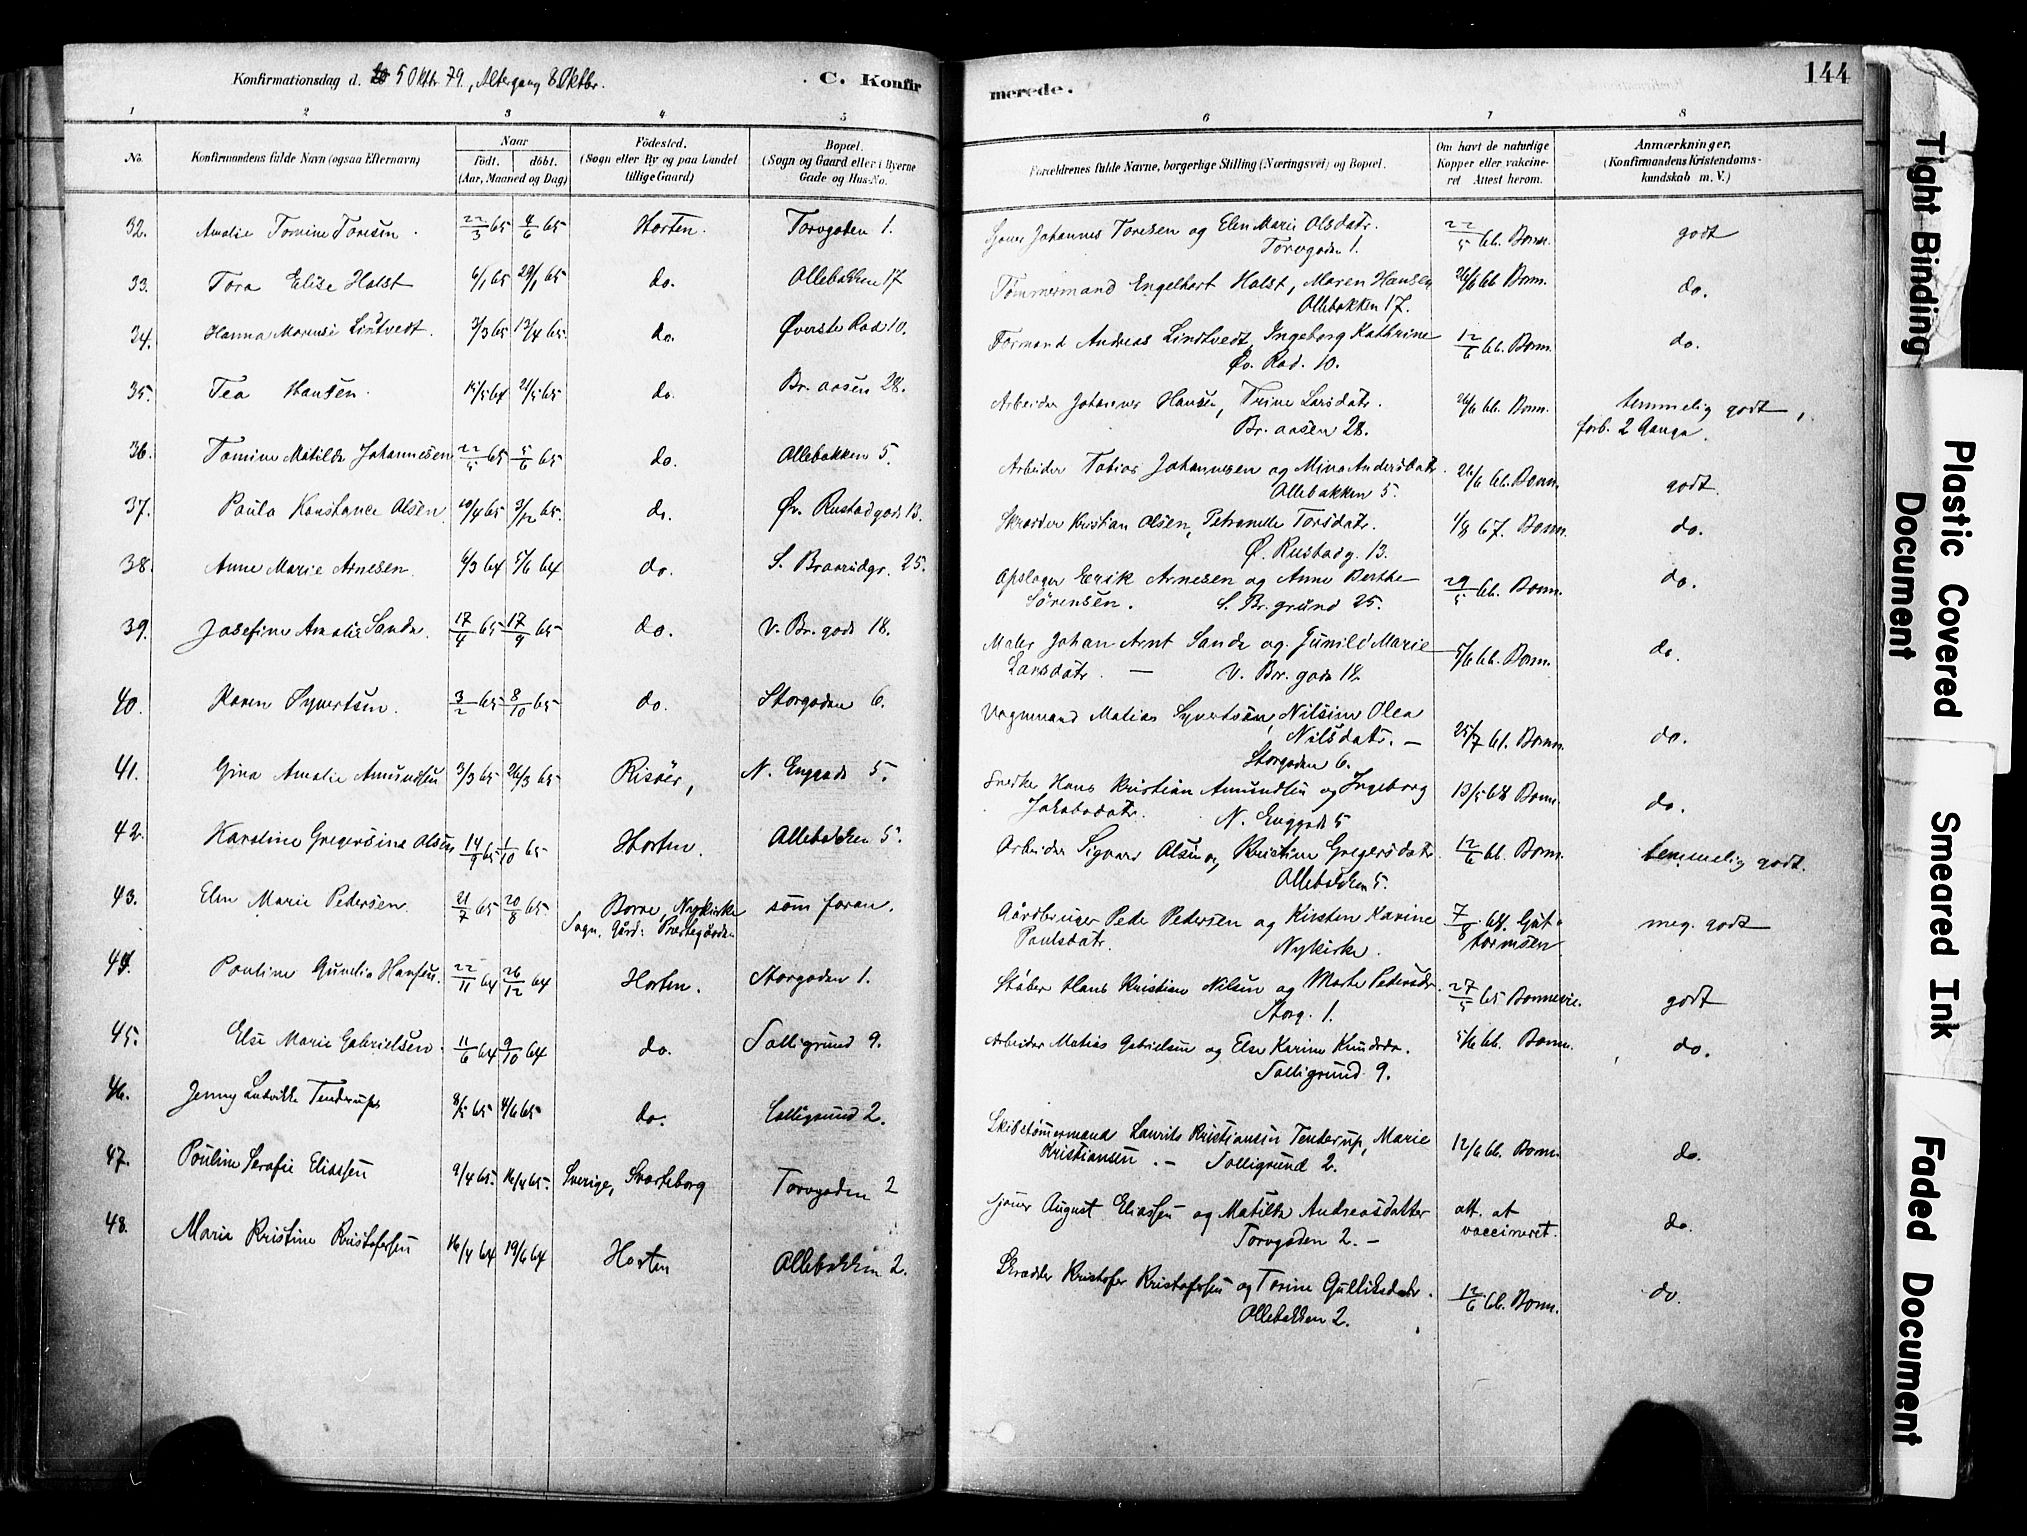 Konfirmationsdag d. 5 Oktbr. 79., Altergang 8 Oktbr.
C. Konfir
merede.
144
1 2 3 4 5 6 7 8
No.
Konfirmandens fulde Navn (ogsaa Efternavn)
Naar
födt. döbt.
(Aar, Maaned og Dag)
Födested.
(Sogn eller By og paa Landet
tillige Gaard)
Bopæl.
(Sogn og Gaard eller i Byerne
Gade og Hus-No.
Forældrenes fulde Navne, borgerlige Stilling (Næringsvei) og Bopæl.
Om havt de naturlige
Kopper eller vakcine-
ret Attest herom.
Anmærkninger.
(Konfirmandens Kristendoms-
kundskab m. V.)
32. Amalie Tomine Toresen. 22/3 65 4/6 65 Horten. Torvgaden 1. Johannes Toresen og Elen Marie Olsdatr. 22/5 66. Bonn. godt
Torvgaden 1.
33. Tora Elise Holst 6/1 65 29/1 65 do. Ollebakken 17 Tømmermand Engelhart Holst, Maren Hansen 26/6 66 Bonn. do.
Ollebakken 17.
34. Hanna Marense Lintvedt. 3/3 65 13/4 65. do. Øverste Rad 10. Formand Andreas Lindtvedt, Ingeborg Kathrine 12/6 66. Bonn. do.
Øv. Rad. 10.
35. Tea Hansen. 15/5 64 21/5 65 do. Br. aasen 28. Arbeider Johannes Hansen, Trine Larsdatr. 26/6 66. Bonn. temmelig godt,
Br. aasen 28. forb. 2 Gange.
36. Tomine Matilde Johannesen 22/5 65 5/6 65 do. Ollebakken 5. Arbeider Tobias Johannesen og Mina Andersdatr. 26/6 66. Bonn. godt.
Ollebakken 5.
37. Paula Konstance Olsen. 19/4 65 3/12 65. do. Øv. Rustadgade 13. Skrædder Kristian Olsen, Petronelle Torsdatr. 4/8 67. Bonn. do.
Ø. Rustadg. 13.
38. Anne Marie Arnesen. 6/3 64 5/6 64 do. S. Braarudgr. 25. Opslager Erik Arnesen og Anne Berthe 29/5 66. Bonn. do.
Sørensen. S. Br. grund 25.
39. Josefine Amalie Sande. 17/4 65 17/9 65 do. V. Br. gade 18. Maler Johan Arnt Sande og Gunild Marie 5/6 66. Bonn. do.
Larsdatr. — V. Br. gade 18.
40. Karen Syvertsen. 3/2 65 8/10 65 do. Storgaden 6. Vognmand Matias Syvertsen, Nilsine Olea 25/7 61. Bonn. do.
Nilsdatr. —
Storgaden 6.
41. Gina Amalie Amundsen 3/3 65 26/3 65 Risöer, N. Enggade 5. Snedker Hans Kristian Amundsen og Ingeborg 13/5 68 Bonn. do.
Jakobsdatr. N. Enggade 5
42. Karoline Gregersine Olsen 14/9 65 1/10 65 Horten. Ollebakken 5. Arbeider Sigvard Olsen og Kristine Gregersdatr. 12/6 66. Bonn. temmelig godt.
Ollebakken 5.
43. Elen Marie Pedersen. 21/7 65 20/8 65 Borre, Nykirke som foran. Gårdbruger Peder Pedersen og Kirsten Karine 7/8 68. Gut- meg. godt
Sogn. Gård: Præstegården Paulsdatr. Nykirke. tormsen
44. Pouline Gunelie Hansen. 22/11 64 26/12 64 Horten. Storgaden 1. Støber Hans Kristian Nilsen og Marte Pedersdr. 27/5 65 Bonnevie. godt
Storg. 1.
45. Else Marie Gabrielsen. 11/6 64 9/10 64 do. Solligrund 9. Arbeider Matias Gabrielsen og Else Karine Knudsdr. 5/6 66. Bonn. do.
Solligrund 9.
46. Jenny Ludvikke Tenderup 8/5 65 4/6 65 do. Solligrund 2. Skibstömermand Laurits Kristiansen Tenderup, Marie 12/6 66. Bonn. do.
Kristiansen. — Solligrund 2.
47. Pouline Serafie Eliassen 9/4 65. 16/4 65. Sverige, Svarteborg Torvgaden 2 August Eliassen og Matilda Andreasdatter att. at do.
Torvgaden 2. — vaccineret.
48. Marie Kristine Kristofersen 16/4 64 19/6 64 Horten Ollebakken 2. Skrædder Kristofer Kristofersen og Torine Gulliksdatr. 12/6 66. Bonn. do.
Ollebakken 2.
Tight Binding
Plastic Covered
Document
Smeared Ink
Faded Document